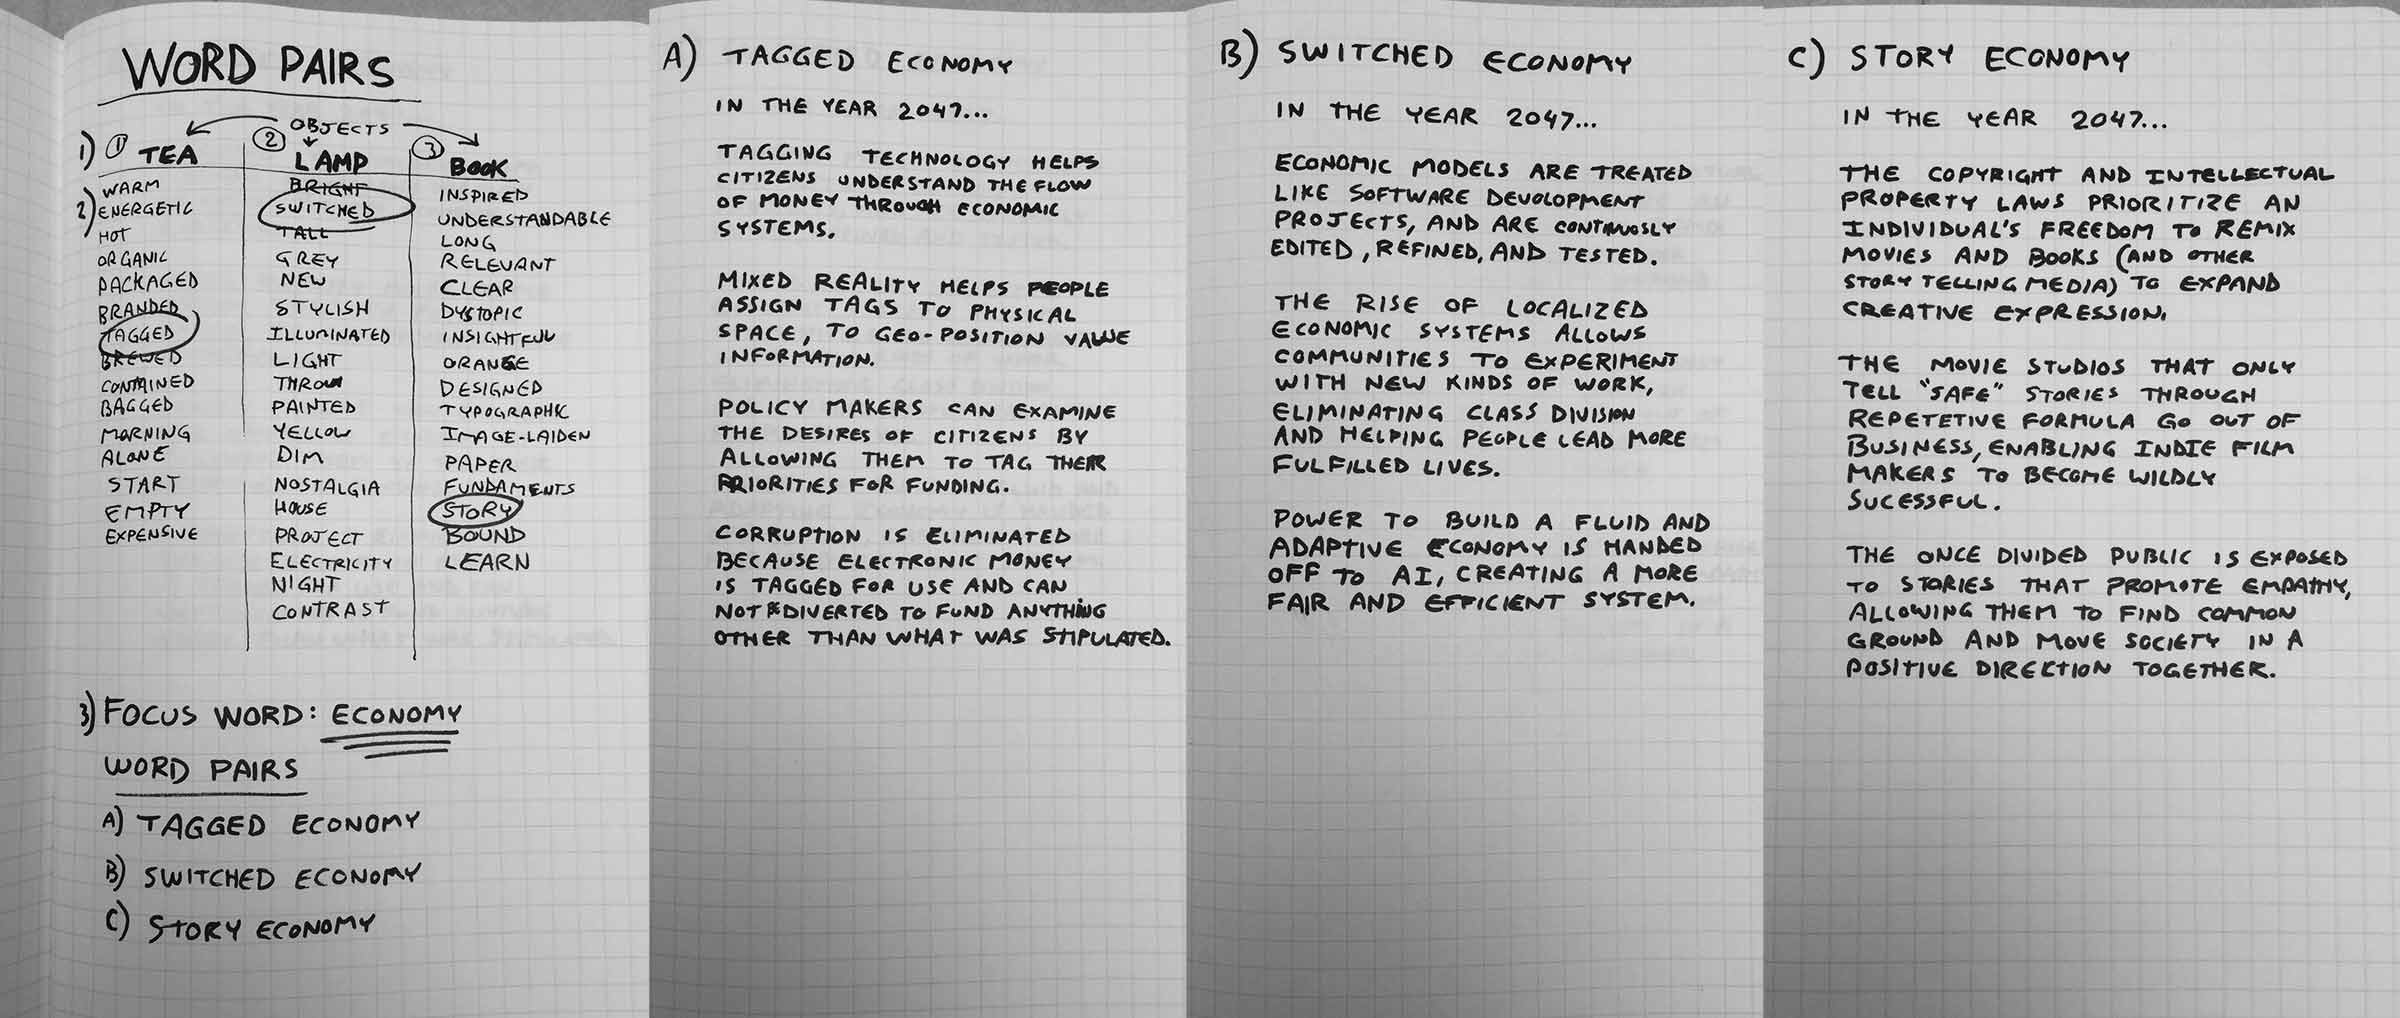 WORD PAIRS
OBJECTS
1) ① TEA
WARM
2) ENERGETIC
HOT
ORGANIC
PACKAGED
BRANDED
TAGGED
BREWED
CONTAINED
BAGGED
MORNING
ALONE
START
EMPTY
EXPENSIVE
② LAMP
BRIGHT
SWITCHED
TALL
GREY
NEW
STYLISH
ILLUMINATED
LIGHT
THROW
PAINTED
YELLOW
DIM
NOSTALGIA
HOUSE
PROJECT
ELECTRICITY
NIGHT
CONTRAST
③ BOOK
INSPIRED
UNDERSTANDABLE
LONG
RELEVANT
CLEAR
DYSTOPIC
INSIGHTFUL
ORANGE
DESIGNED
TYPOGRAPHIC
IMAGE-LAIDEN
PAPER
FUNDAMENTS
STORY
BOUND
LEARN
3) FOCUS WORD: ECONOMY
WORD PAIRS
A) TAGGED ECONOMY
B) SWITCHED ECONOMY
C) STORY ECONOMY
A) TAGGED ECONOMY
IN THE YEAR 2047...
TAGGING TECHNOLOGY HELPS
CITIZENS UNDERSTAND THE FLOW
OF MONEY THROUGH ECONOMIC
SYSTEMS.
MIXED REALITY HELPS PEOPLE
ASSIGN TAGS TO PHYSICAL
SPACE, TO GEO-POSITION VALUE
INFORMATION.
POLICY MAKERS CAN EXAMINE
THE DESIRES OF CITIZENS BY
ALLOWING THEM TO TAG THEIR
PRIORITIES FOR FUNDING.
CORRUPTION IS ELIMINATED
BECAUSE ELECTRONIC MONEY
IS TAGGED FOR USE AND CAN
NOT DIVERTED TO FUND ANYTHING
OTHER THAN WHAT WAS STIPULATED.
B) SWITCHED ECONOMY
IN THE YEAR 2047...
ECONOMIC MODELS ARE TREATED
LIKE SOFTWARE DEVOLOPMENT
PROJECTS, AND ARE CONTINUOSLY
EDITED, REFINED, AND TESTED.
THE RISE OF LOCALIZED
ECONOMIC SYSTEMS ALLOWS
COMMUNITIES TO EXPERIMENT
WITH NEW KINDS OF WORK,
ELIMINATING CLASS DIVISION
AND HELPING PEOPLE LEAD MORE
FULFILLED LIVES.
POWER TO BUILD A FLUID AND
ADAPTIVE ECONOMY IS HANDED
OFF TO AI, CREATING A MORE
FAIR AND EFFICIENT SYSTEM.
C) STORY ECONOMY
IN THE YEAR 2047...
THE COPYRIGHT AND INTELLECTUAL
PROPERTY LAWS PRIORITIZE AN
INDIVIDUAL'S FREEDOM TO REMIX
MOVIES AND BOOKS (AND OTHER
STORY TELLING MEDIA) TO EXPAND
CREATIVE EXPRESSION.
THE MOVIE STUDIOS THAT ONLY
TELL "SAFE" STORIES THROUGH
REPETETIVE FORMULA GO OUT OF
BUSINESS, ENABLING INDIE FILM
MAKERS TO BECOME WILDLY
SUCESSFUL.
THE ONCE DIVIDED PUBLIC IS EXPOSED
TO STORIES THAT PROMOTE EMPATHY,
ALLOWING THEM TO FIND COMMON
GROUND AND MOVE SOCIETY IN A
POSITIVE DIRECTION TOGETHER.